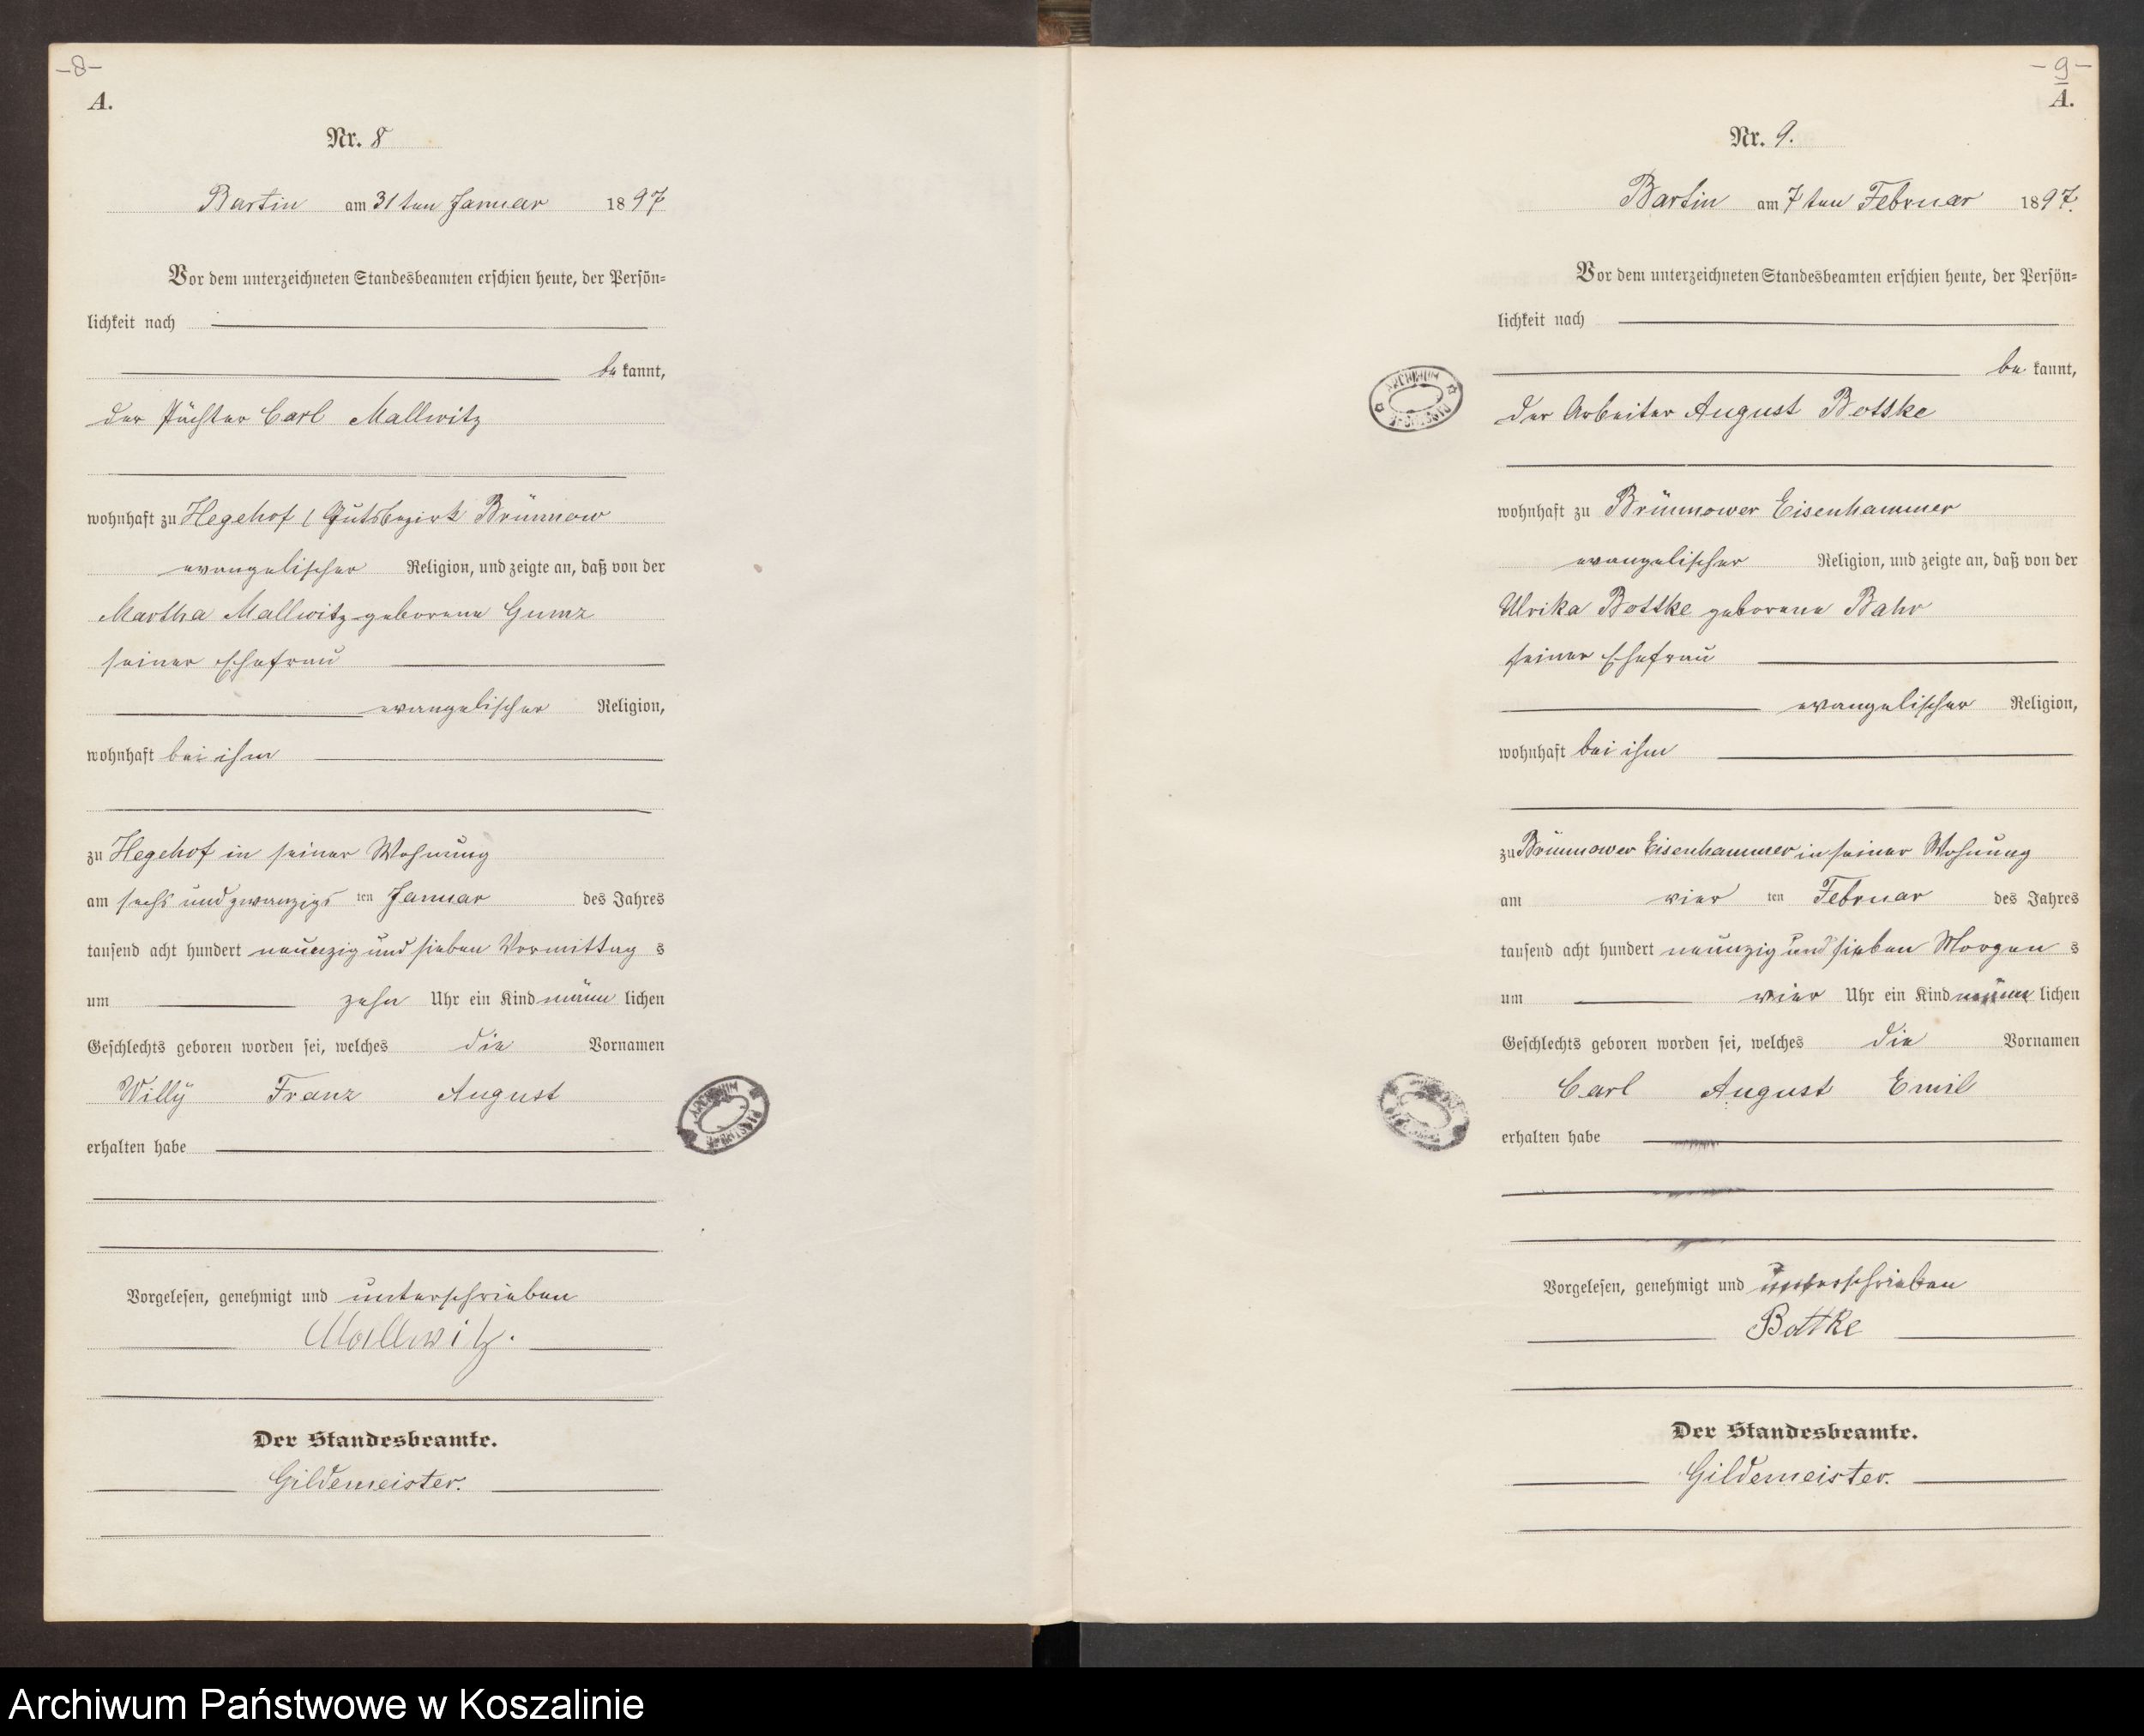 -8-
A.
Nr. 8
Bartin am 31ten Januar 1897
Vor dem unterzeichneten Standesbeamten erschien heute, der Persön=
lichkeit nach
bekannt,
der Pächter Carl Mallwitz
wohnhaft zu Hegehof / Gutsbezirk Brünnow
evangelischer Religion, und zeigte an, daß von der
Martha Mallwitz geborene Gumz
seiner Ehefrau
evangelischer Religion,
wohnhaft bei ihm
zu Hegehof in seiner Wohnung
am sechs und zwanzigsten Januar des Jahres
tausend acht hundert neunzig und sieben Vormittags
um zehn Uhr ein Kind männlichen
Geschlechts geboren worden sei, welches die Vornamen
Willy Franz August
erhalten habe
Vorgelesen, genehmigt und unterschrieben
Mallwitz.
Der Standesbeamte.
Gildemeister.
-9-
A.
Nr. 9.
Bartin am 7ten Februar 1897.
Vor dem unterzeichneten Standesbeamten erschien heute, der Persön=
lichkeit nach
bekannt,
der Arbeiter August Bottke
wohnhaft zu Brünnower Eisenhammer
evangelischer Religion, und zeigte an, daß von der
Ulrika Bottke geborene Bahr
seiner Ehefrau
evangelischer Religion,
wohnhaft bei ihm
zu Brünnower Eisenhammer in seiner Wohnung
am vierten Februar des Jahres
tausend acht hundert neunzig und sieben Morgens
um vier Uhr ein Kind männlichen
Geschlechts geboren worden sei, welches die Vornamen
Carl August Emil
erhalten habe
Vorgelesen, genehmigt und unterschrieben
Bottke
Der Standesbeamte.
Gildemeister.
Archiwum Państwowe w Koszalinie